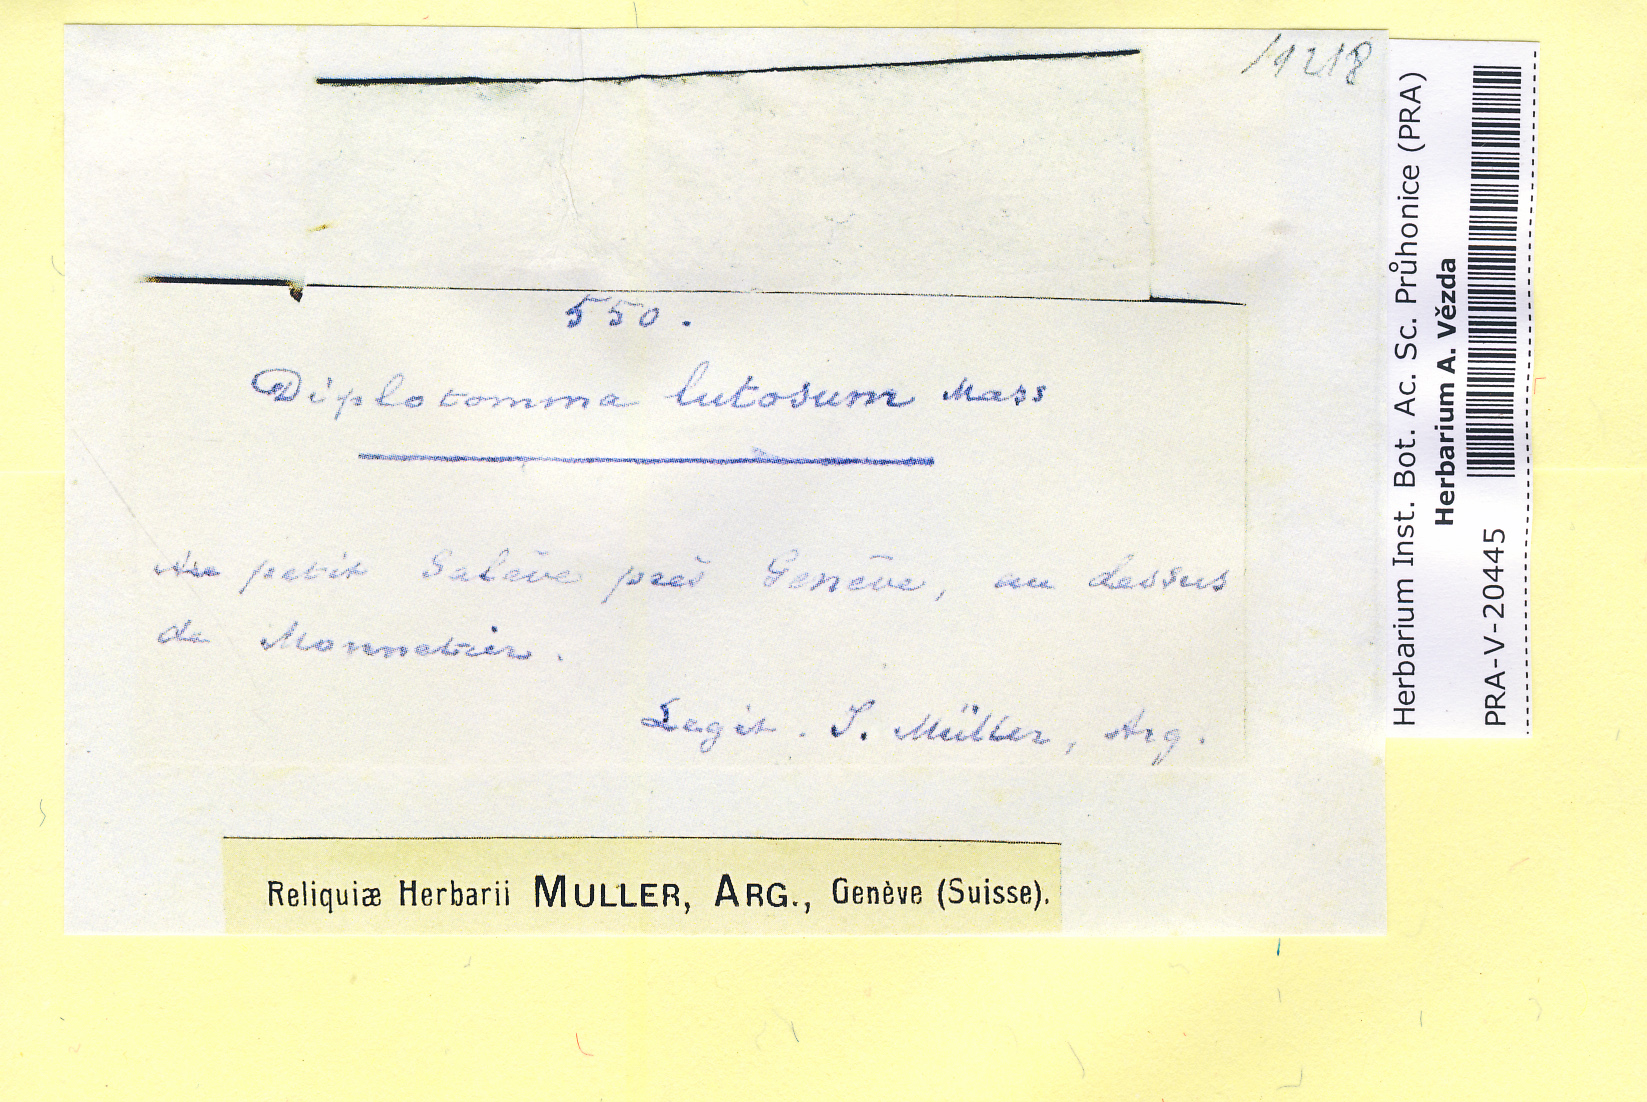 19218
550.
Diplotomma lutosum Mass
Au petit Salève près Genève, au dessus
de Monnetier.
Legit. J. Müller, Arg.
Reliquiæ Herbarii MULLER, ARG., Genève (Suisse).
Herbarium Inst. Bot. Ac. Sc. Průhonice (PRA)
Herbarium A. Vězda
PRA-V-20445